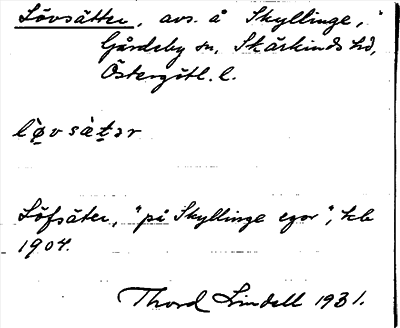 Lövsätter, avs. å Skyllinge,
Gårdeby sn, Skärkinds hd,
Östergötl. l.
lø̀vsætər
Löfsäter, "på Skyllinge egor", kb
1904.
Thord Lindell 1931.